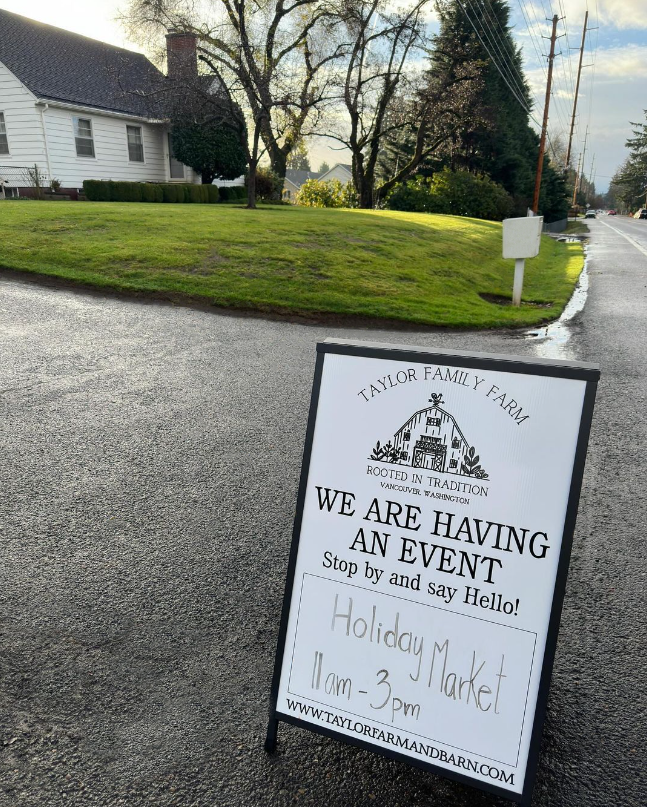 TAYLOR FAMILY FARM
ROOTED IN TRADITION
VANCOUVER, WASHINGTON
WE ARE HAVING
AN EVENT
Stop by and say Hello!
Holiday Market
11am - 3pm
WWW.TAYLORFARMANDBARN.COM